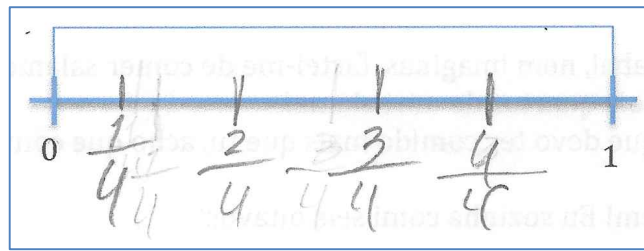 0 1/4 2/4 3/4 4/4 1